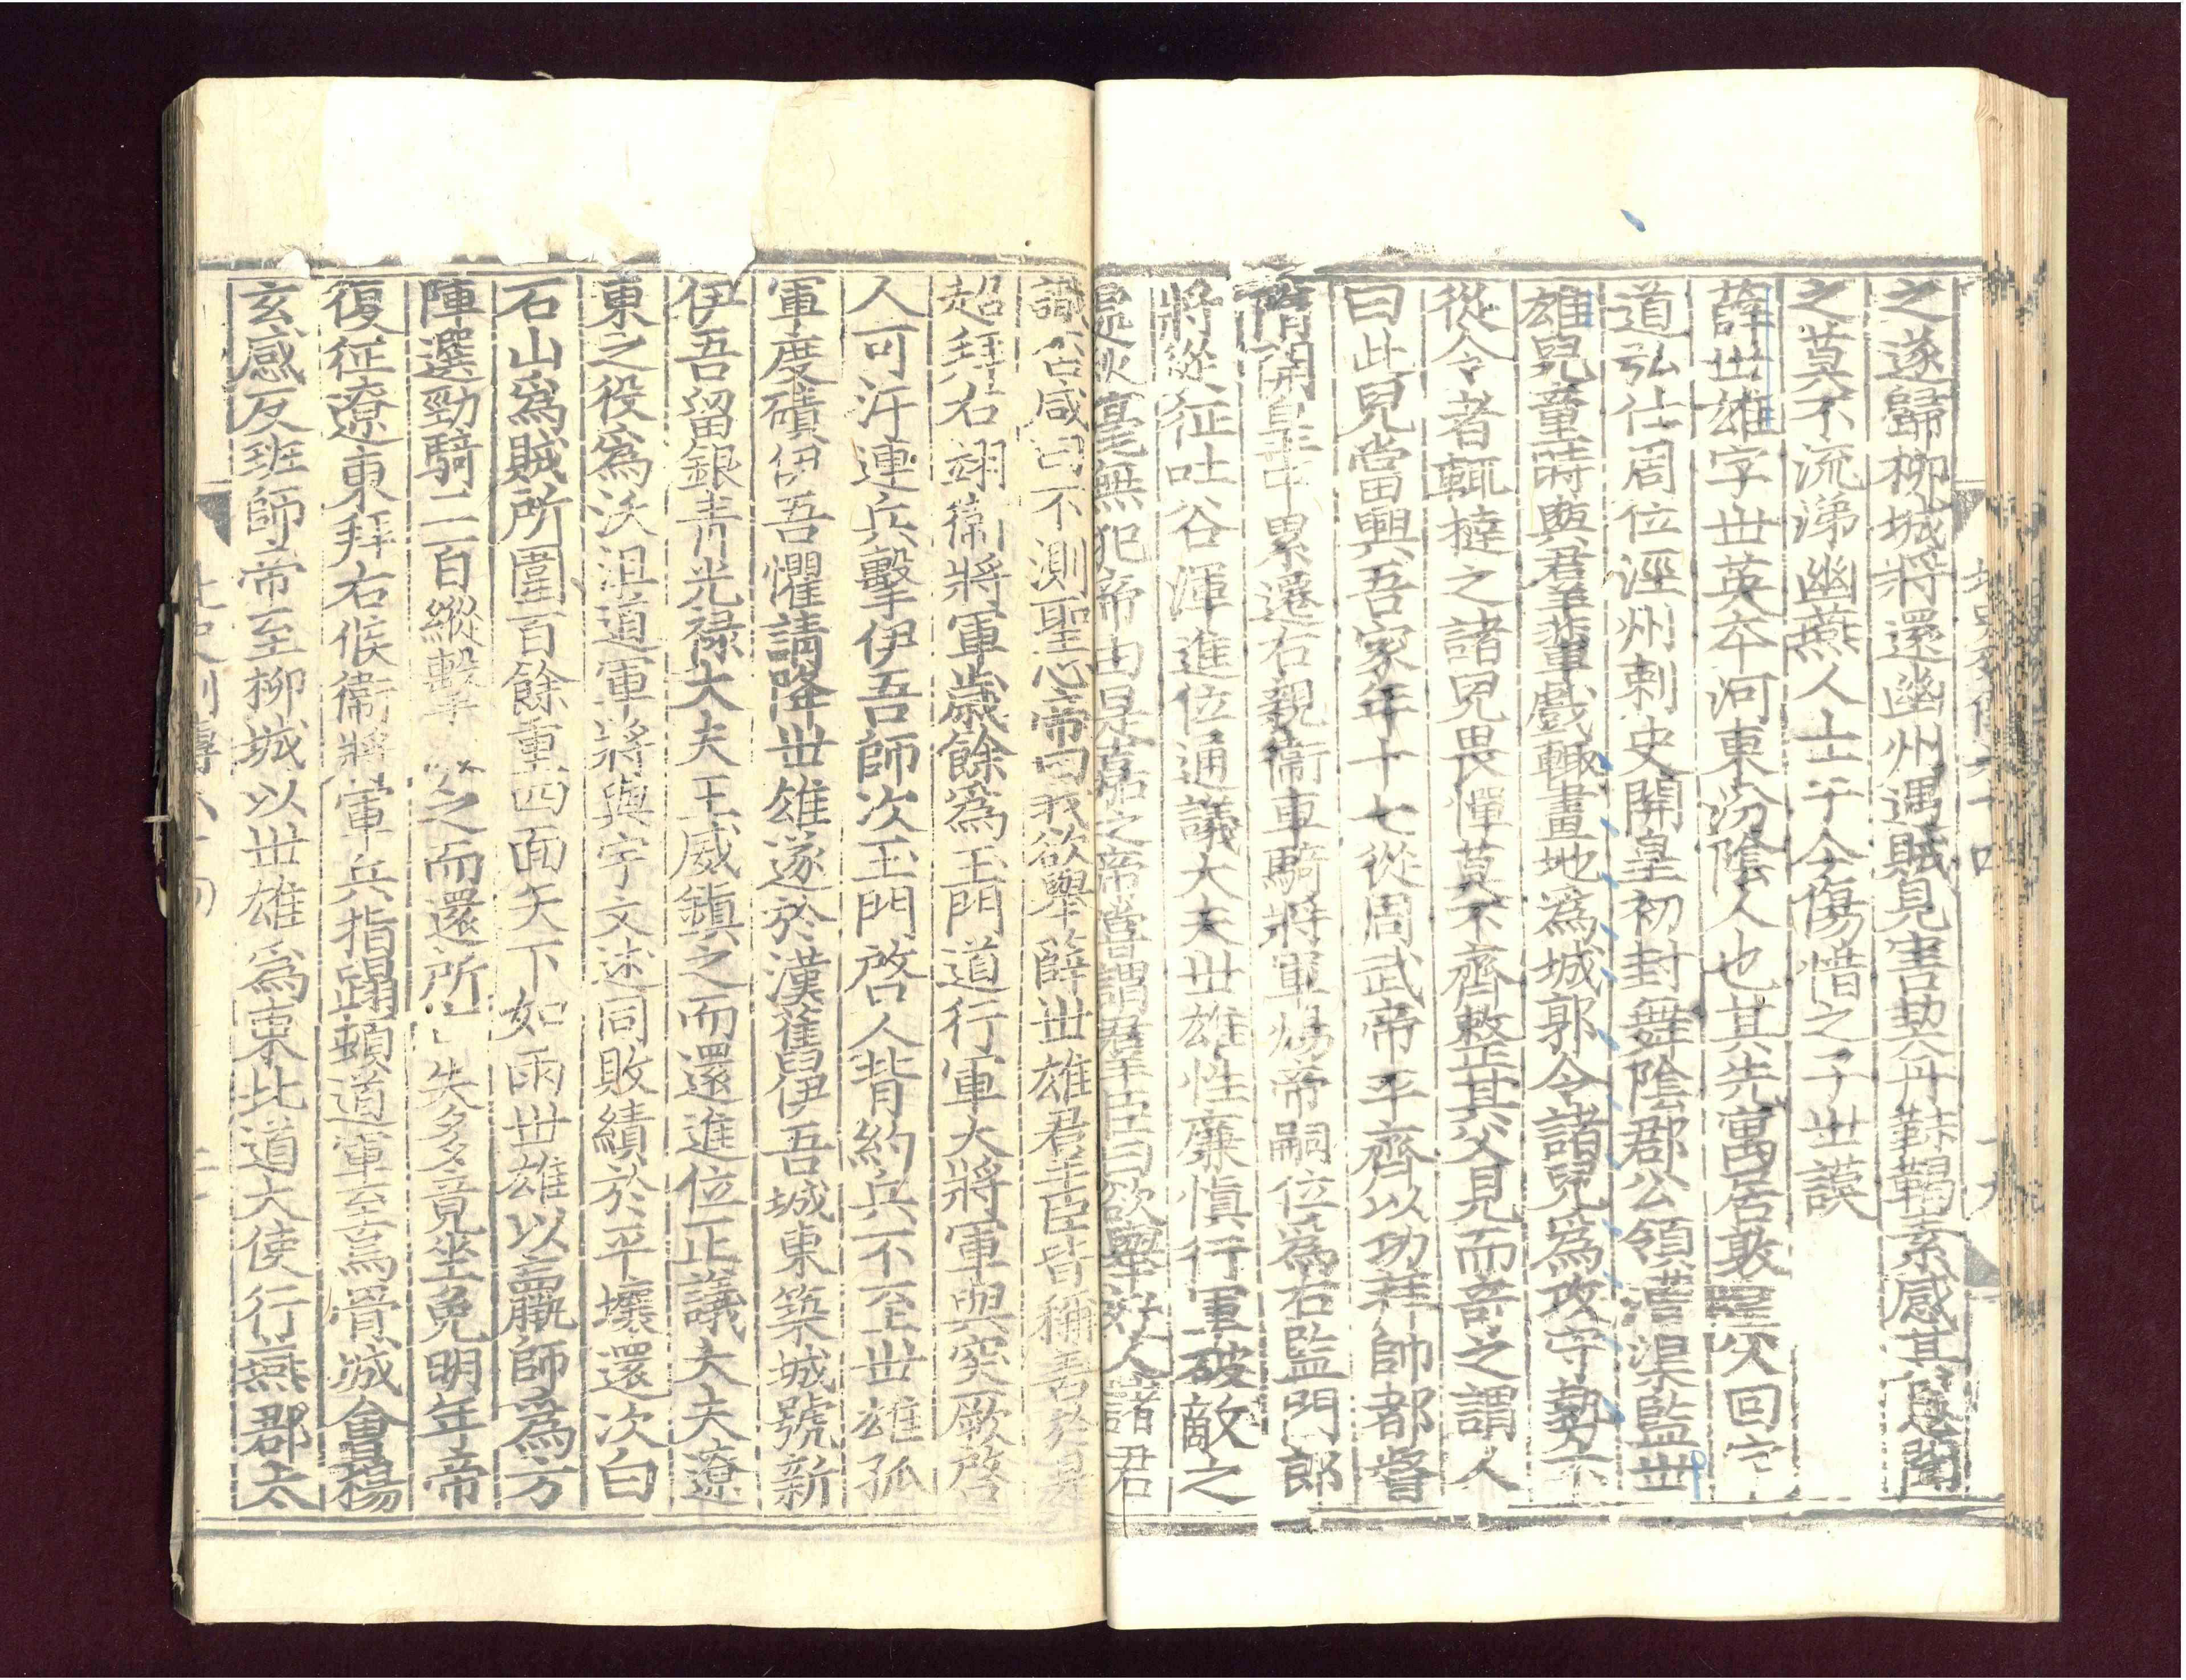 之遂歸柳城將還幽州遇賊見害契丹靺鞨素感其恩聞
之莫不流涕幽燕人士于今傷惜之子世謨
薛世雄字世英本河東汾陰人也其先寓居敦煌父回字
道弘仕周位涇州刺史開皇初封舞陰郡公領漕渠監世
雄兒童時與群輩戲輒畫地爲城郭令諸兒爲攻守勢不
從令者輒撻之諸兒畏憚莫不齊整其父見而竒之謂人
曰此兒當興吾家年十七從周武帝平齊以功拜帥都督
隋開皇中累遷右親衞車騎將軍煬帝嗣位爲右監門郎
將從征吐谷渾進位通議大夫世雄性廉愼行軍破敵之
處秋毫無犯帝由是嘉之帝嘗謂群臣曰欲舉好人諸君
識否咸曰不測聖心帝曰我欲舉薛世雄群臣皆稱善於是
超拜右翊衞將軍歲餘爲玉門道行軍大將軍與突厥啓
人可汗連兵擊伊吾師次玉門啓人背約兵不至世雄孤
軍度磧伊吾懼請降世雄遂於漢舊伊吾城東築城號新
伊吾留銀青光禄大夫王威鎭之而還進位正議大夫遼
東之役爲沃沮道軍將與宇文述同敗績於平壤還次白
石山爲賊所圍百餘重四面矢下如雨世雄以羸師爲方
陣選勁騎二百縱擊 之而還所 失多竟坐免明年帝
復征遼東拜右候衞將軍兵指蹋頓道軍至烏骨城會楊
玄感反班師帝至柳城以世雄爲東北道大使行燕郡太
北史列傳六十四